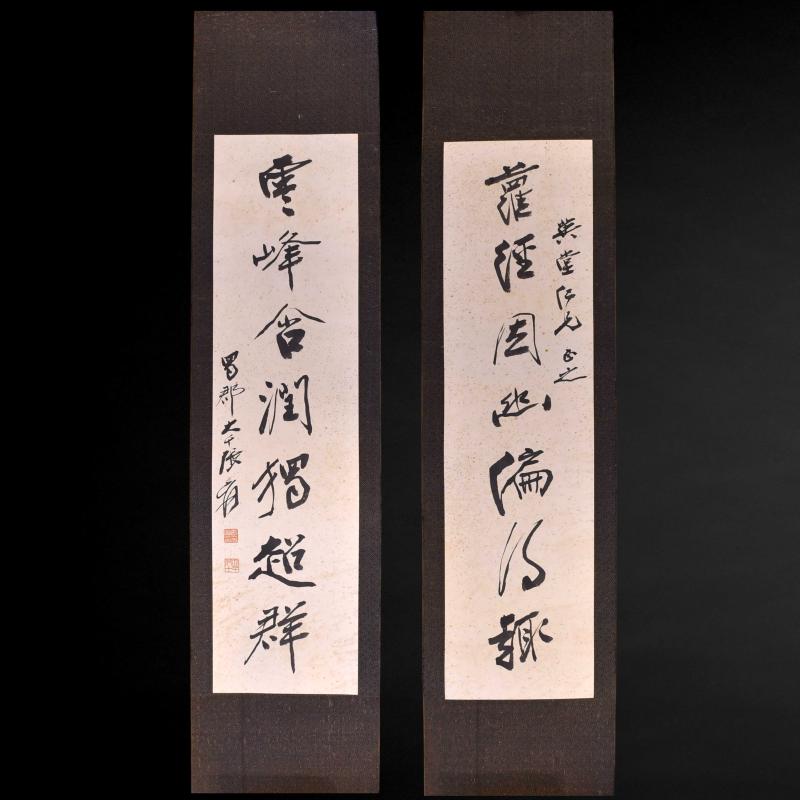 英堂仁兄正之
蘿徑因幽偏得趣
雲峰含潤獨超群
蜀郡大千張爰